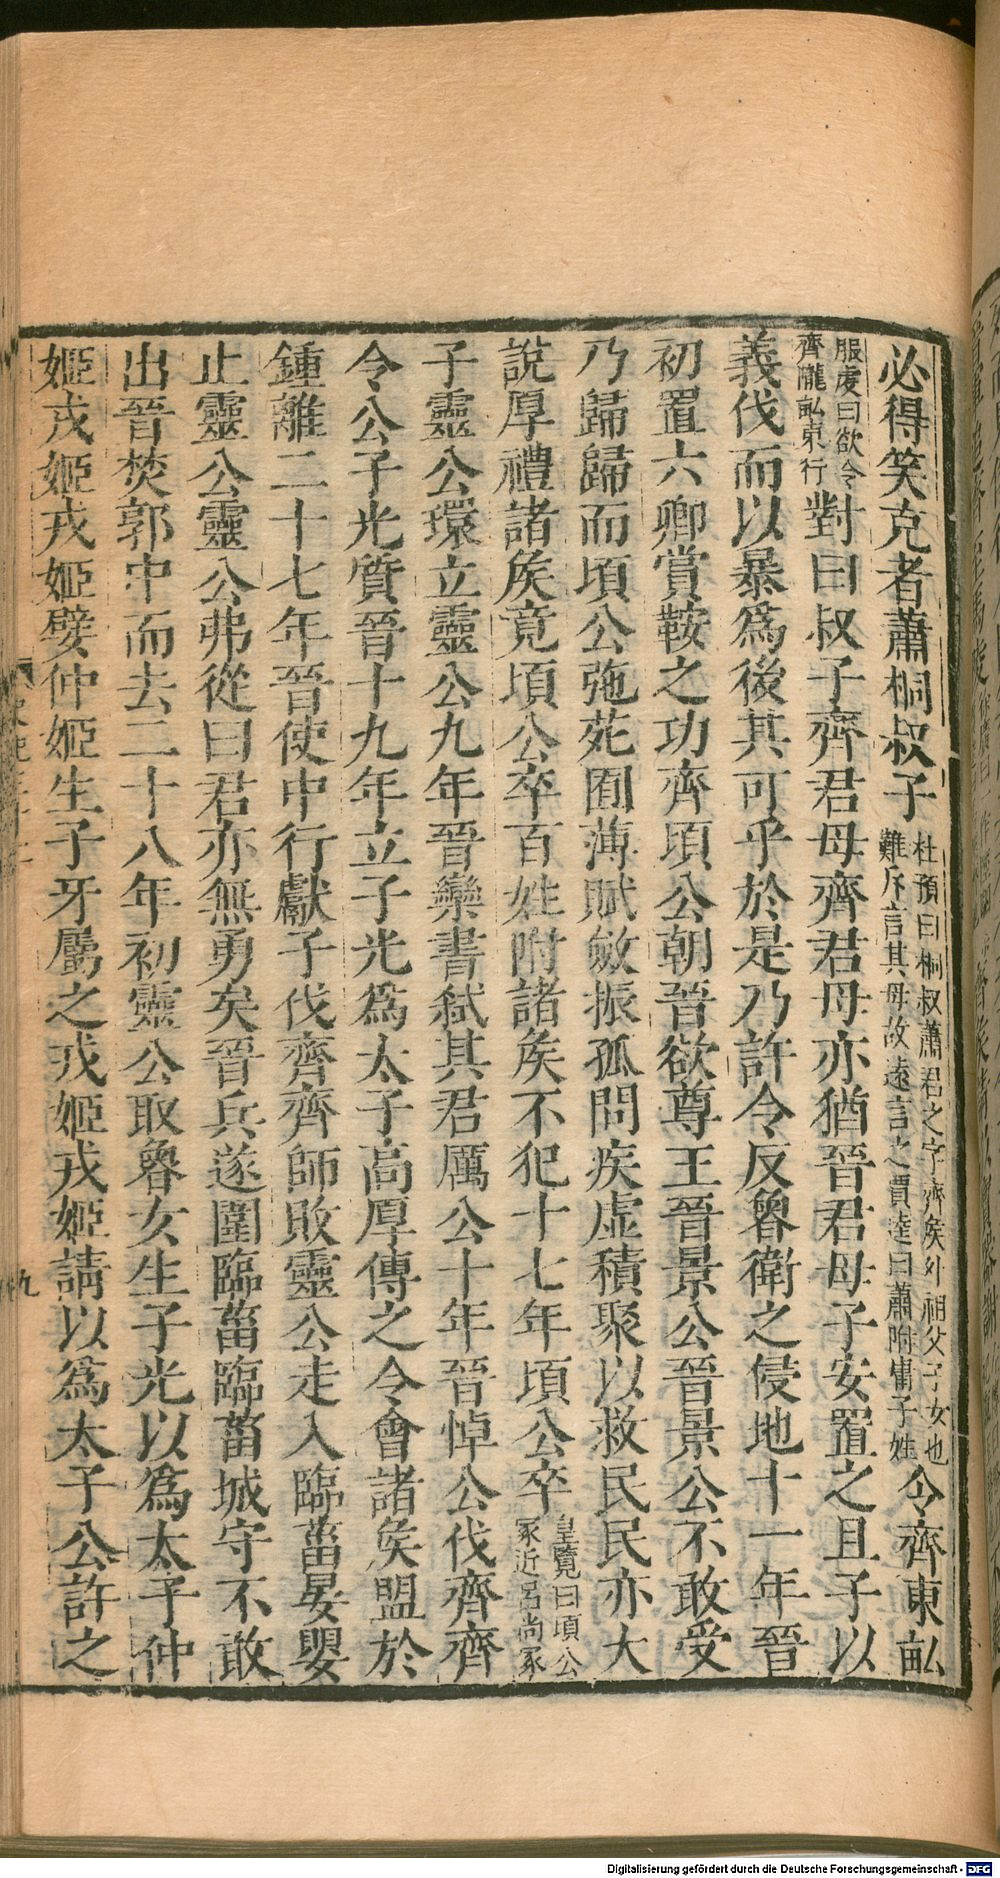 必得笑克者蕭桐叔子杜預曰桐叔蕭君之字齊侯外祖父子女也難斥言其母故遠言之賈逵曰蕭附庸子姓令齊東畝
服虔曰欲令齊隴畝東行對曰叔子齊君母齊君母亦猶晉君母子安置之且子以
義伐而以暴爲後其可乎於是乃許令反魯衛之侵地十一年晉
初置六卿賞鞍之功齊頃公朝晉欲尊王晉景公晉景公不敢受
乃歸歸而頃公弛苑囿薄賦斂振孤問疾虛積聚以救民民亦大
說厚禮諸侯竟頃公卒百姓附諸侯不犯十七年頃公卒皇覽曰頃公冢近呂尚冢
子靈公環立靈公九年晉欒書弒其君厲公十年晉悼公伐齊齊
令公子光質晉十九年立子光爲太子高厚傅之令會諸侯盟於
鍾離二十七年晉使中行獻子伐齊齊師敗靈公走入臨菑晏嬰
止靈公靈公弗從曰君亦無勇矣晉兵遂圍臨菑臨菑城守不敢
出晉焚郭中而去二十八年初靈公取魯女生子光以爲太子仲
姬戎姬戎姬嬖仲姬生子牙屬之戎姬戎姬請以爲太子公許之
九
Digitalisierung gefördert durch die Deutsche Forschungsgemeinschaft - DFG